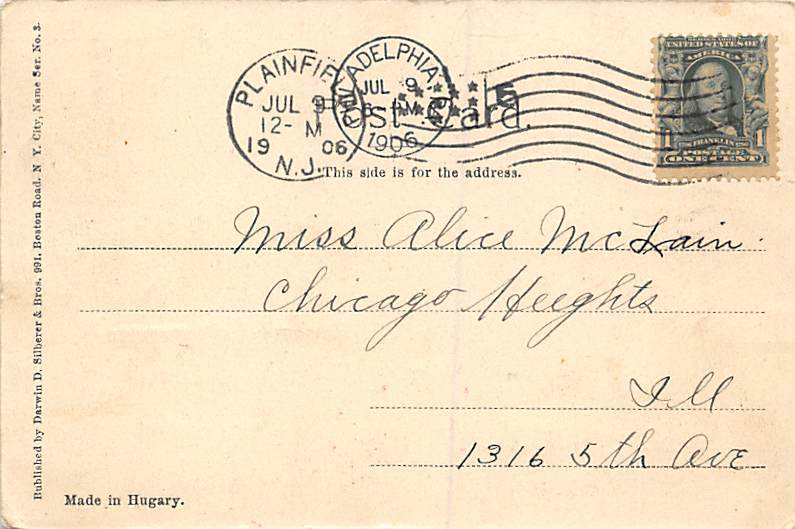 Published by Darwin D. Silberer & Bros. 991, Beston Road. N Y. City, Name Ser. No. 3.
PLAINFIELD
JUL 9
12- M
19 06
N.J.
PHILADELPHIA, PA
JUL 9
1906
5
UNITED STATES OF
AMERICA
1 FRANKLIN 1
POSTAGE
ONE CENT
Post Card.
This side is for the address.
Miss Alice McLain
Chicago Heights
Ill
1316 5th Ave
Made in Hugary.